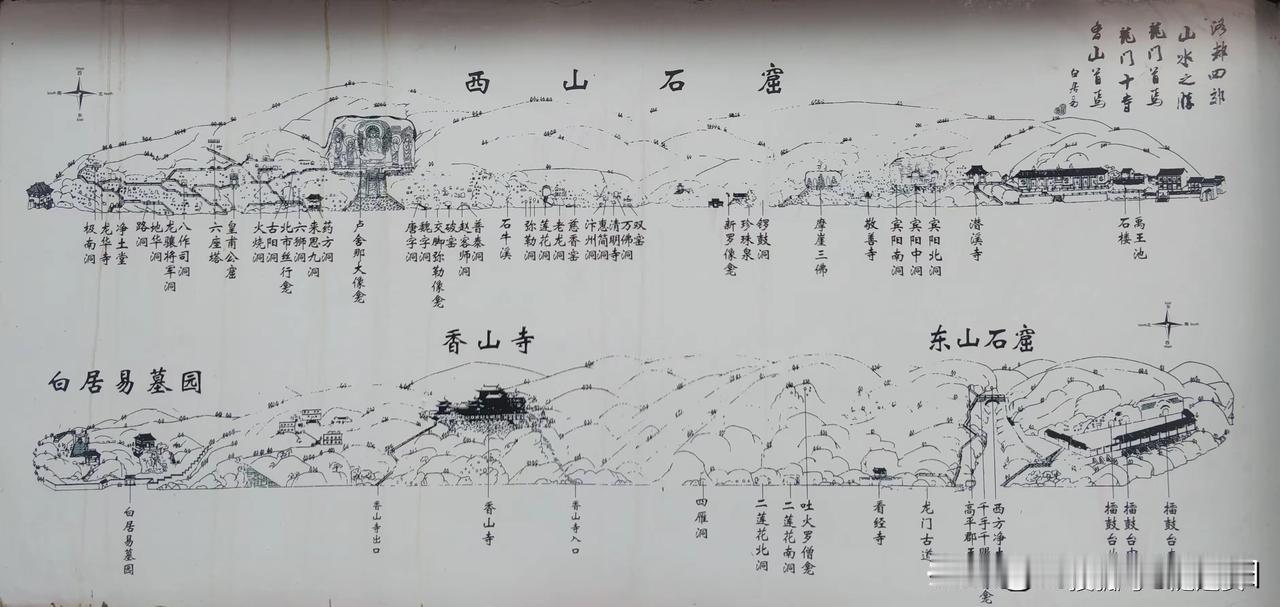 洛都四郊
山水之胜
龍门首焉
龍门十寺
香山首焉
白居易
西山石窟
极南洞
龙华寺
净土堂
路洞
地华洞
龙骧将军洞
八作司洞
六座塔
皇甫公窟
火烧洞
古阳洞
北市丝行龛
六狮洞
来思九洞
药方洞
卢舍那大像龛
唐字洞
魏字洞
交脚弥勒像龛
破窑
赵客师洞
普泰洞
石牛溪
弥勒洞
莲花洞
老龙洞
慈香窑
汴州洞
惠简洞
清明寺
万佛洞
双窑
新罗像龛
珍珠泉
锣鼓洞
摩崖三佛
敬善寺
宾阳南洞
宾阳中洞
宾阳北洞
潜溪寺
石楼
禹王池
白居易墓园
香山寺
东山石窟
白居易墓园
香山寺出口
香山寺
香山寺入口
四雁洞
二莲花北洞
二莲花南洞
吐火罗僧龛
看经寺
龙门古道
高平郡王
千手千眼
龛
西方净土
擂鼓台北
擂鼓台中
擂鼓台